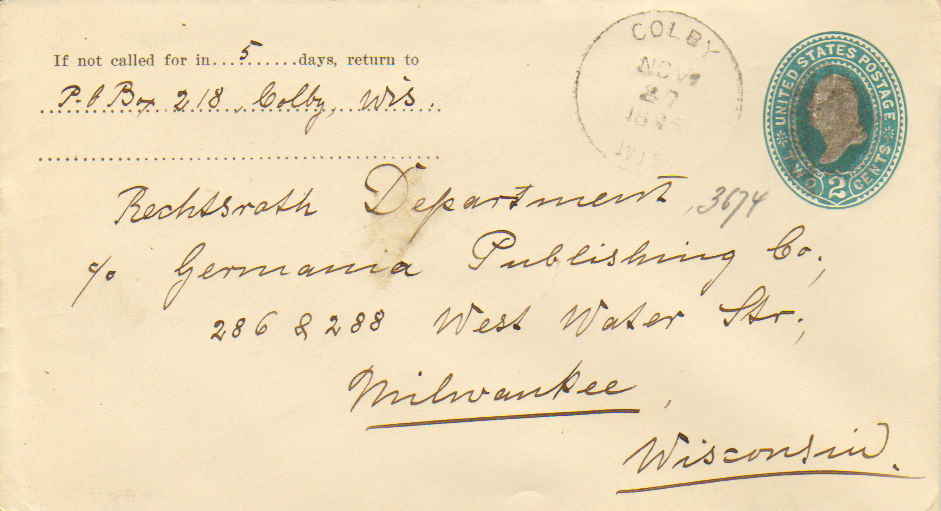 If not called for in...5......days, return to
P.O Box 218, Colby, Wis.
COLBY
NOV
27
WIS
UNITED STATES POSTAGE
TWO 2 CENTS
Rechtsrath Department, 3674
c/o Germania Publishing Co.,
286 & 288 West Water Str.,
Milwaukee,
Wisconsin.